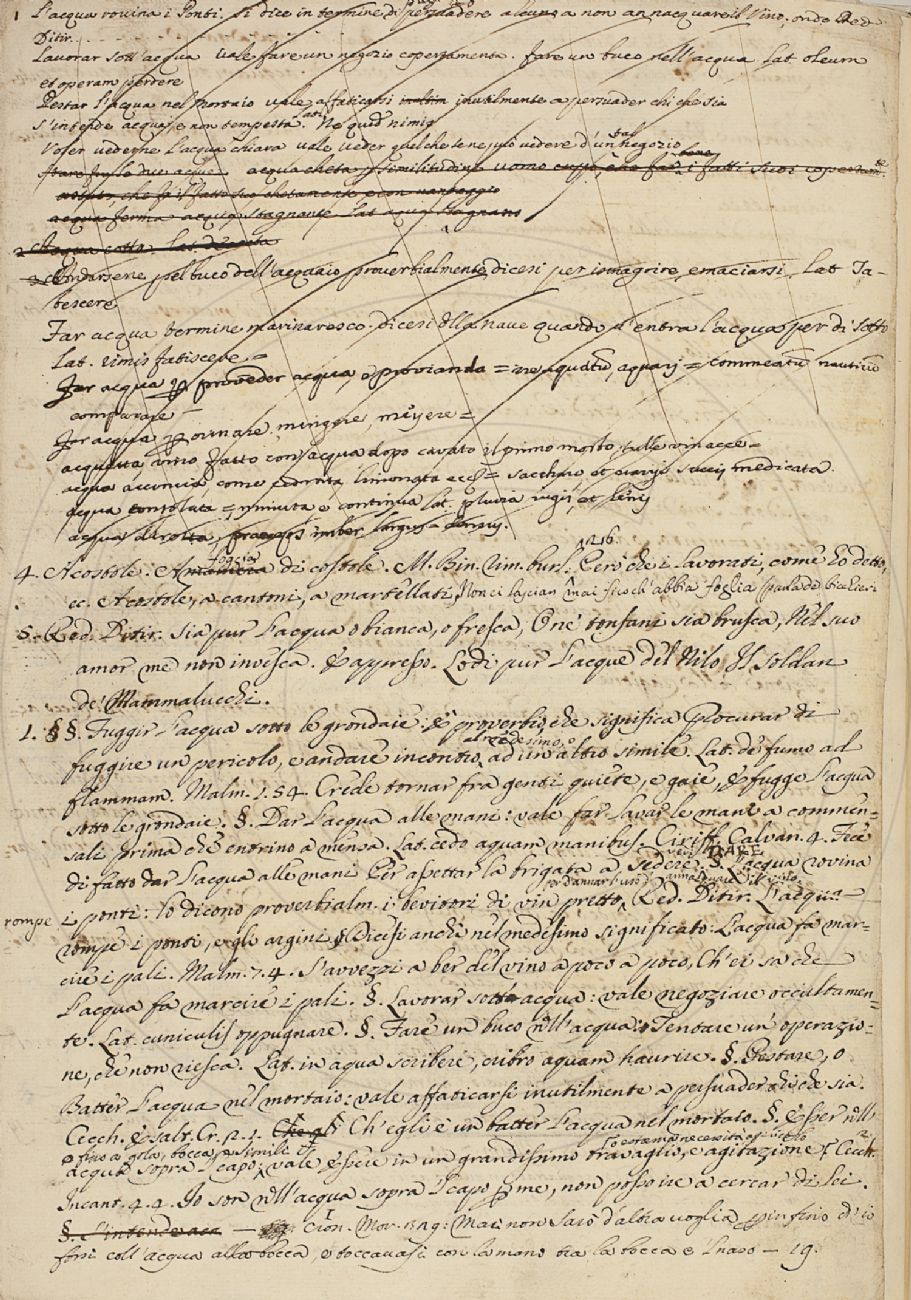 1 L'acqua rovina i Ponti. Si dice in termine di persuadere alcuno a non annacquare il Vino, onde Red.
Ditir.
Lavorar sott'acqua vale fare un negozio copertamente. Fare un buco nell'acqua Lat. oleum
et operam perdere
Pestar l'acqua nel mortaio vale affaticarsi inutilmente a persuader chi che sia
S'intende acqua, e non tempesta. Ne quid nimis
Voler vederne l'acqua chiara vale veder quel che tene, vuò vedere d'un tal negozio
Stare fra le due acque. acqua cheta similitudine uomo cuppo, che fa bene i fatti suoi copertam.te
che fa il fatto suo chetamente e con vantaggio
acqua ferma acqua stagnante Lat. aqua stagnans
2 Acqua cotta. Lat. decocta
Andarsene pel buco dell'acquaio proverbialmente dicesi per ismagrire, emaciarsi, Lat. Ta-
bescere
Far acqua termine marinaresco. dicesi della nave quando v'entra l'acqua per di sotto
Lat. rimis fatiscere =
Far acqua p proveder acqua, o provianda = aquatum, aquari = commeatum nauticum
comparare =
Far acqua p orinare, mingere, mejere =
acquata, vino fatto con acqua dopo cavato il primo mosto, sulle vinacce =
acqua acconcia, come cedrata, limonata ecc. = saccharo et succis medicata
acqua minuta e continua Lat. pluvia iugis, et lenis
acqua dirotta, praeceps imber largus densus.
4. A costole. A foggia di costole. M. Bin. rim. burl. 1.216. Però che i lavorati, come ho detto,
ec. A costole, a cantoni, a martellati, Non ci lascian mai feccia ch'abbia foglia (parla de bicchieri
5. Red. Ditir. Sia pur l'acqua o bianca, o fresca, O ne' tonfani sia brusca, Nel suo
amor me non invesca. E appresso. Lodi pur l'acque del Nilo Il Soldan
de' Mammalucchi.
1. §§. Fuggir l'acqua sotto le grondaie: è proverbio, che significa Procurar di
fuggire un pericolo, e andare incontro al medesimo, o ad un altro simile. Lat. de fumo ad
flammam. Malm. 1.54. Crede tornar fra genti quiete, e gaie, E fugge l'acqua
sotto le grondaie. §. Dar l'acqua alle mani: vale far lavar le mani a commen-
sali prima che entrino a mensa. Lat. cedo aquam manibus. Ciriff. Calvan. 4. Fece
di fatto dar l'acqua alle mani Per aspettar la brigata a sedere. vedi DARE. §. L'acqua rovina
rompe i ponti: lo dicono proverbialm. i bevitori di vin pretto, per dannar l'uso d'annacquare il vino. Red. Ditir. L'acqua
rompe i ponti, e gli argini. § Dicesi anche nel medesimo significato: L'acqua fa mar-
cire i pali. Malm. 7.4. S'avvezzi a ber del vino a poco a poco, Ch'ei sa che
l'acqua fa marcire i pali. §. Lavorar sott'acqua: vale negoziare occultamen-
te. Lat. cuniculis oppugnare. §. Fare un buco nell'acqua: Tentare un'operazio-
ne, che non riesca. Lat. in aqua scribere, cribro aquam haurire. §. Pestare, o
Batter l'acqua nel mortaio: vale affaticarsi inutilmente a persuader chi che sia.
Cecch. Esalt. Cr. 2.1. Che gli Ch'egli è un batter l'acqua nel mortaio. §. Esser nell'
o fino a gola, bocca, e simile
acqua sopra 'l capo: vale essere in un grandissimo travaglio, e agitazione, Cecch.
Incant. 4.4. Io son nell'acqua sopra 'l capo p me, non posso ire a cercar di lei.
§. S'intende aca — Cron. Mor. Mai non sarò d'altra voglia infino ch'io
fossi coll'acqua alla bocca, e toccavasi con la mano tra la bocca e 'l naso — 19.